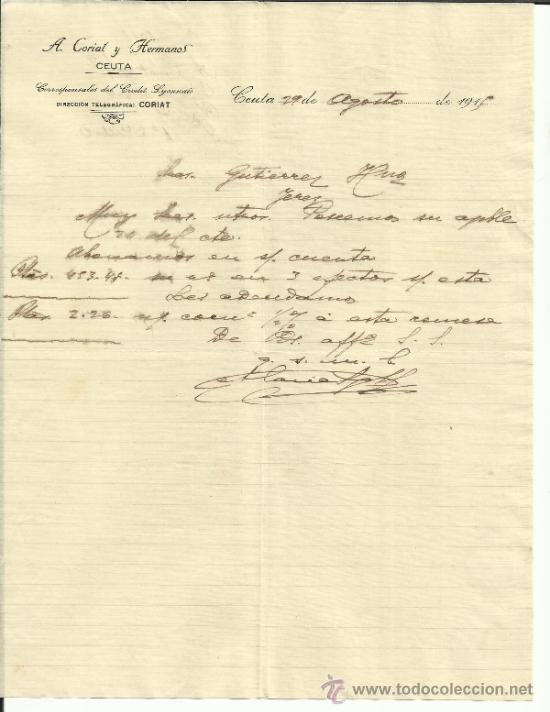 A. Coriat y Hermanos
CEUTA
Corresponsales del Credit Lyonnais
DIRECCIÓN TELEGRÁFICA: CORIAT
Ceuta 29 de Agosto de 191
Sres. Gutierrez Hnos
Jerez
Muy Sres. ntros. Poseemos su apble
20 del cte.
Abonamos en s/. cuenta
Ptas. 453.48 en 3 efectos s/. esta
Les adeudamos
Ptas. 2.26 n/. com. 1/2 % á esta remesa
De Vds. affs S. S.
q. s. m. b.
todocoleccion
www.todocoleccion.net